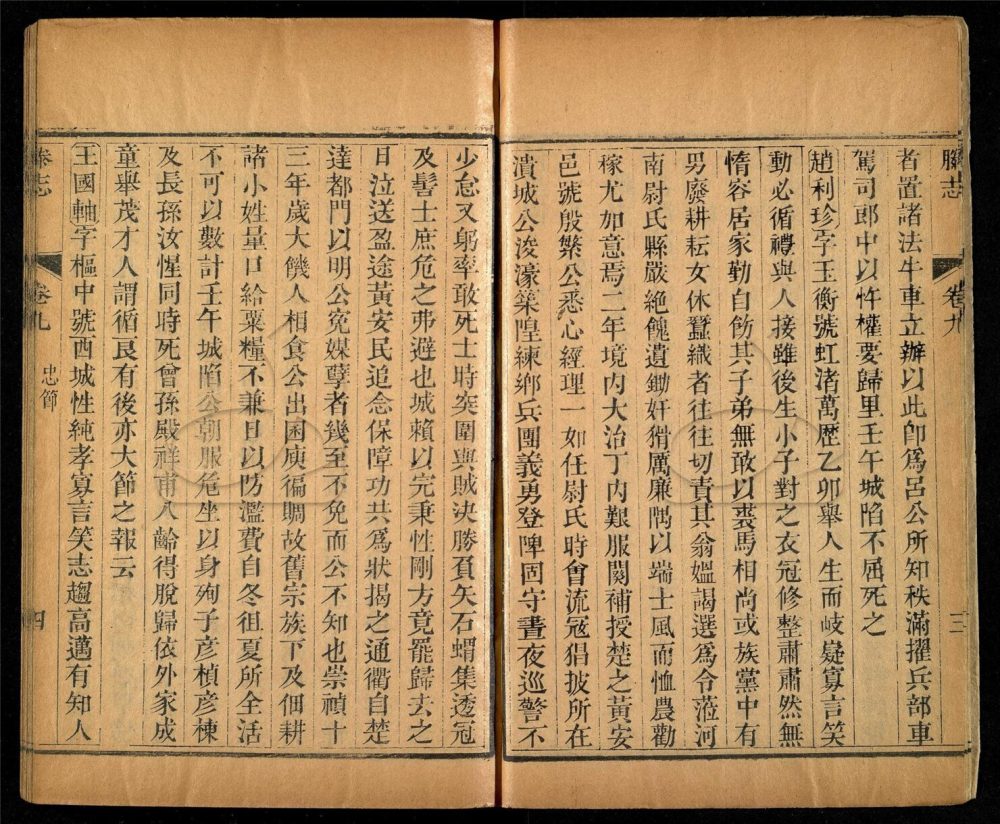 滕志
卷九
三
者置諸法牛車立辦以此卽爲呂公所知秩滿擢兵部車
駕司郎中以忤權要歸里壬午城陷不屈死之
趙利珍字玉衡號虹渚萬歷乙卯舉人生而岐嶷寡言笑
動必循禮與人接雖後生小子對之衣冠修整肅肅然無
惰容居家勤自飭其子弟無敢以裘馬相尚或族黨中有
男廢耕耘女休蠶織者往往切責其翁媼謁選爲令蒞河
南尉氏縣嚴絶餽遺鋤奸猾厲廉隅以端士風而恤農勸
稼尤如意焉二年境内大治丁内艱服闋補授楚之黃安
邑號殷繁公悉心經理一如任尉氏時會流寇猖披所在
潰城公浚濠築隍練鄉兵團義勇登陴固守晝夜巡警不
少怠又躬率敢死士時突圍與賊決勝負矢石蝟集透冠
及髻士庶危之弗避也城賴以完秉性剛方竟罷歸去之
日泣送盈途黃安民追念保障功共爲狀揭之通衢自楚
達都門以明公寃媒孽者幾至不免而公不知也崇禎十
三年歲大饑人相食公出囷庾徧賙故舊宗族下及佃耕
諸小姓量口給粟糧不兼日以防濫費自冬徂夏所全活
不可以數計壬午城陷公朝服危坐以身殉子彥楨彥棟
及長孫汝惺同時死曾孫殿祥甫八齡得脫歸依外家成
童舉茂才人謂循良有後亦大節之報云
王國軸字樞中號酉城性純孝寡言笑志趨高邁有知人
滕志
卷九
忠節
四